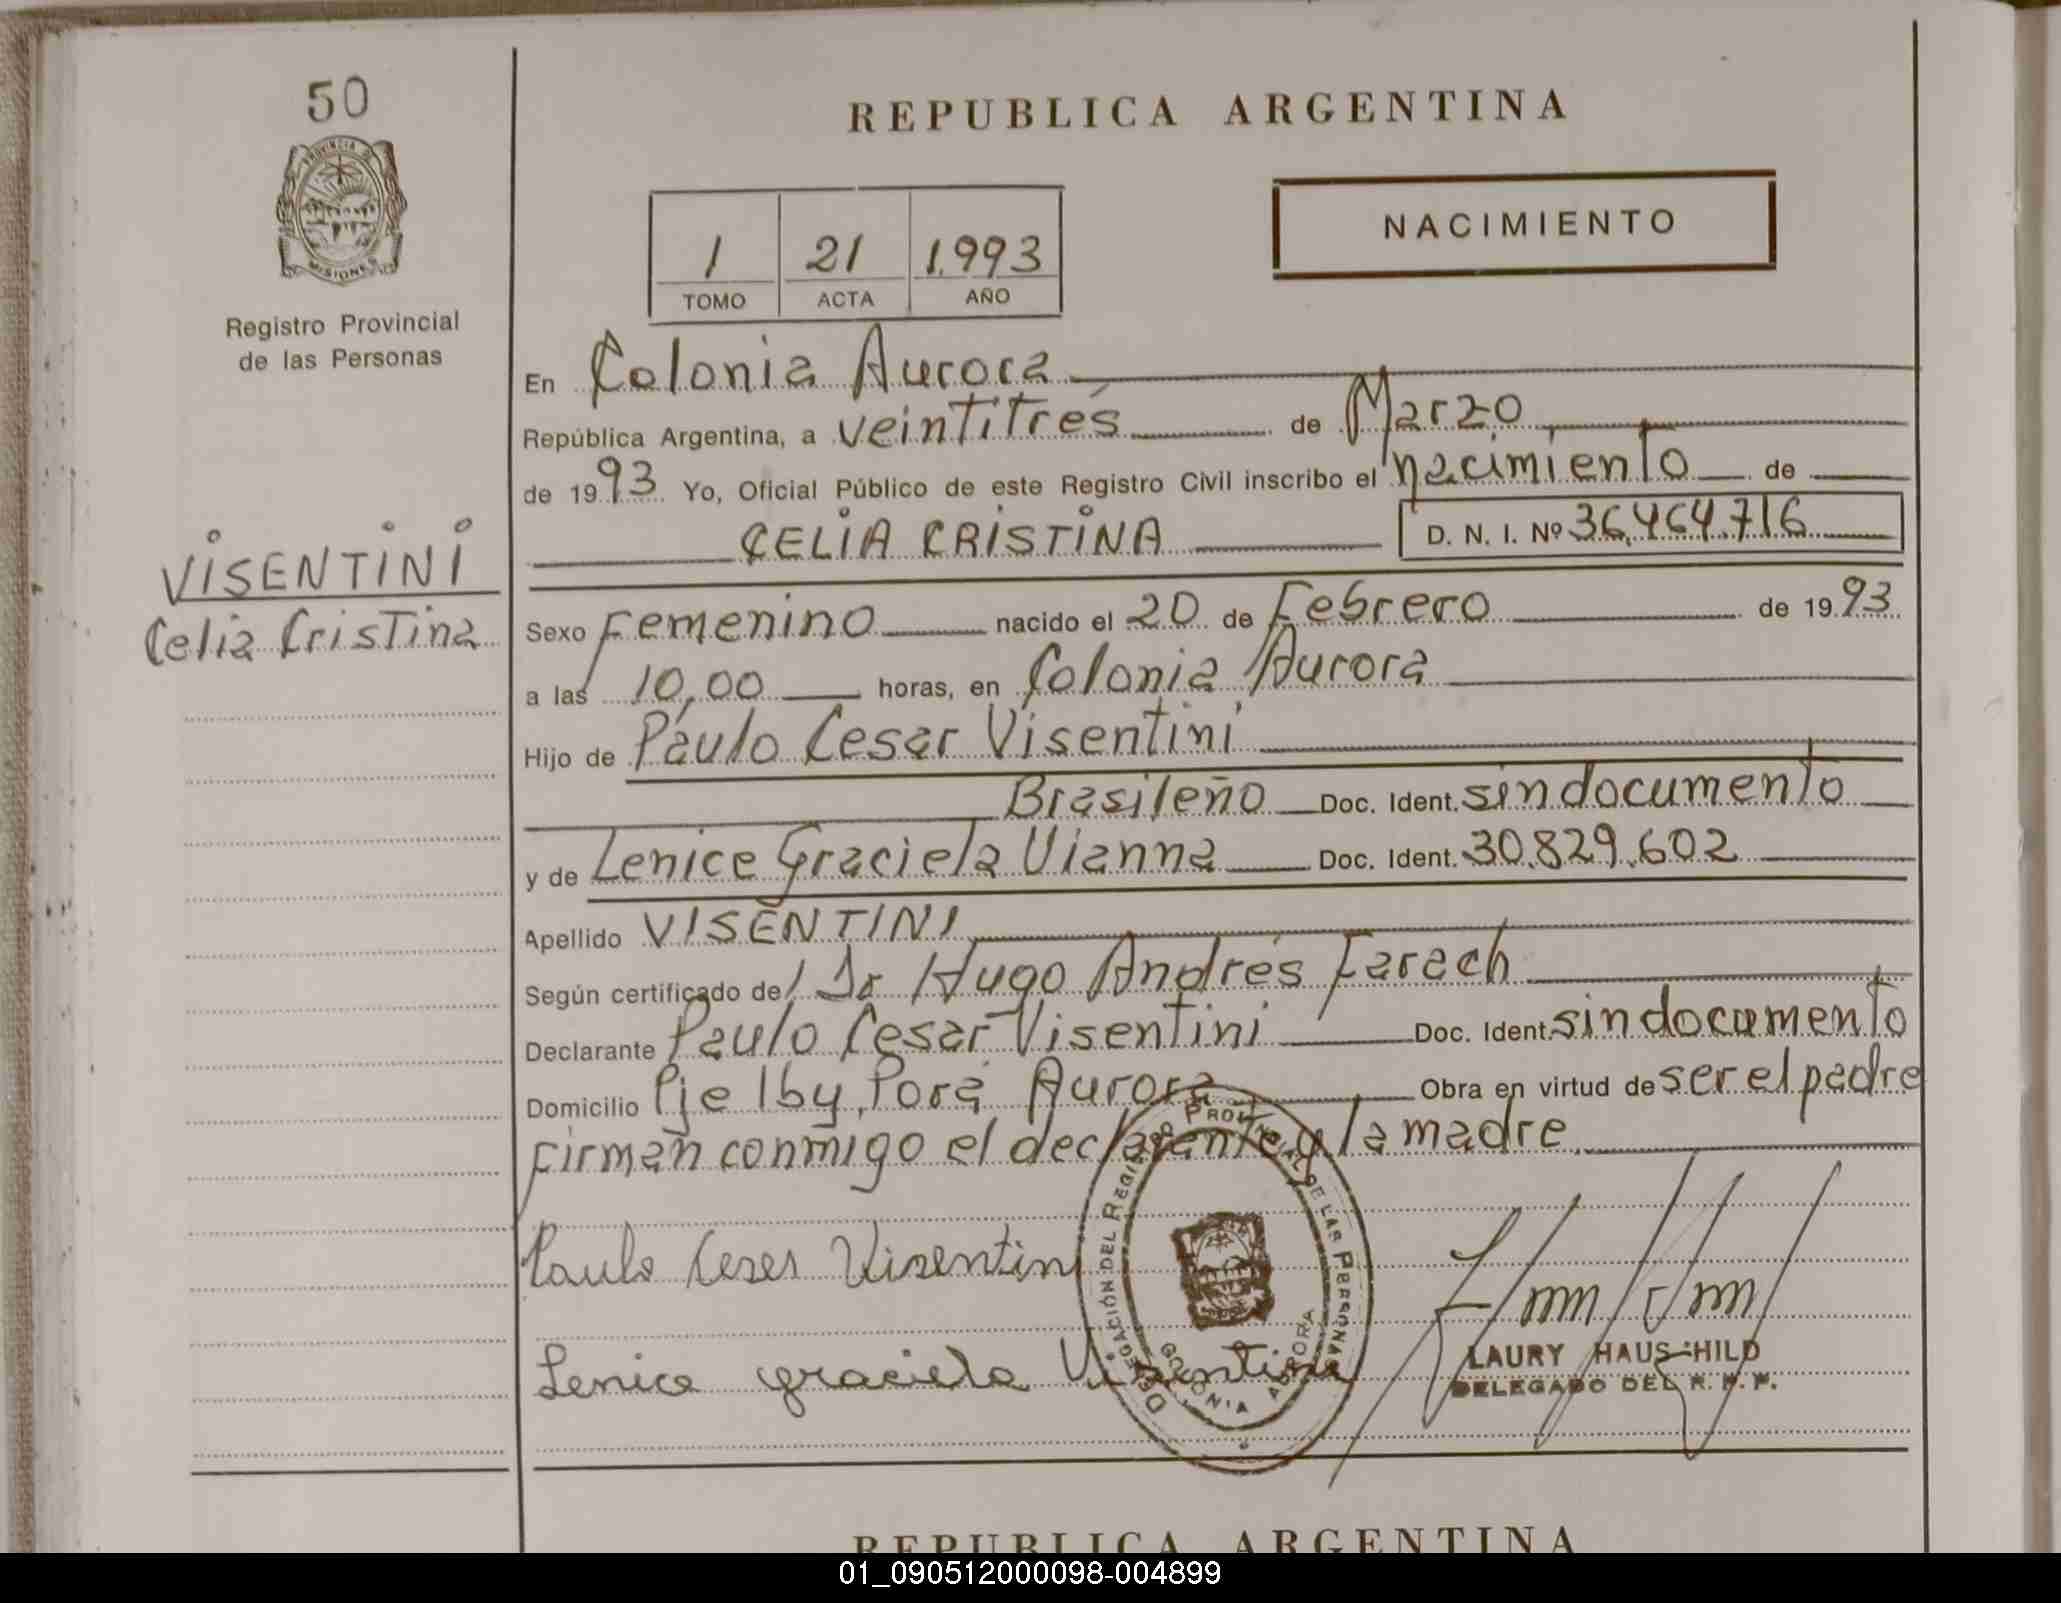 50
PROVINCIA DE
MISIONES
Registro Provincial
de las Personas
VISENTINI
Celia Cristina
REPUBLICA ARGENTINA
NACIMIENTO
1 21 1.993
TOMO ACTA AÑO
En Colonia Aurora
República Argentina, a veintitrés de Marzo
de 1993 Yo, Oficial Público de este Registro Civil inscribo el nacimiento de
CELIA CRISTINA D. N. I. Nº 36.464.716
Sexo Femenino nacido el 20 de Febrero de 1993
a las 10,00 horas, en Colonia Aurora
Hijo de Paulo Cesar Visentini
Brasileño Doc. Ident. sin documento
y de Lenice Graciela Vianna Doc. Ident. 30.829.602
Apellido VISENTINI
Según certificado del Dr Hugo Andrés Farach
Declarante Paulo Cesar Visentini Doc. Ident. sin documento
Domicilio Pje Iby Porá Aurora Obra en virtud de ser el padre
Firman conmigo el declarante y la madre
Paulo Cesar Visentini
Lenice Graciela Visentini
DELEGACIÓN DEL REGISTRO PROVINCIAL DE LAS PERSONAS
COLONIA AURORA
LAURY HAUSCHILD
DELEGADO DEL R. P. P.
REPUBLICA ARGENTINA
01_090512000098-004899